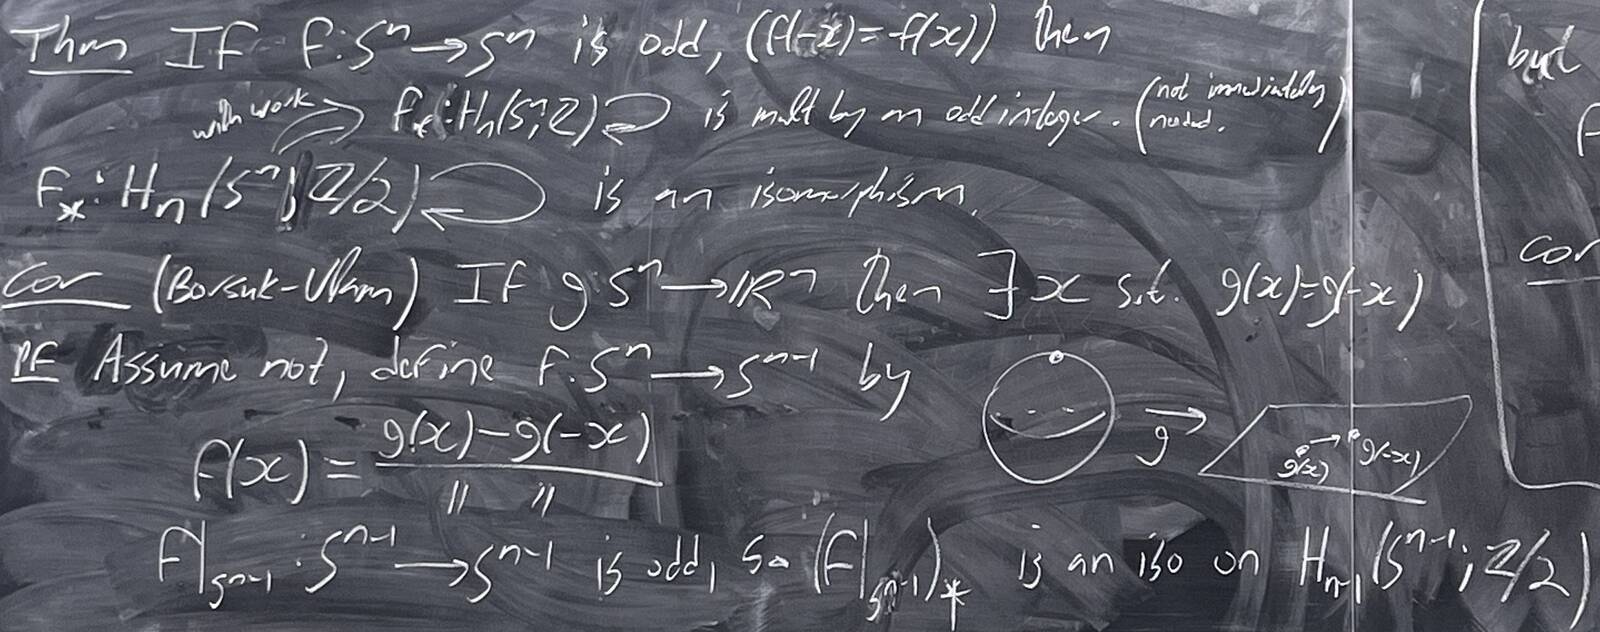 Thm If f: Sⁿ → Sⁿ is odd, (f(-x) = -f(x)) then
with work ⇒ f_* : H_n(Sⁿ; Z) ↺ is mult by an odd integer. (not immediately needed.)
f_* : H_n(Sⁿ; Z/2) ↺ is an isomorphism.
Cor (Borsuk-Ulam) If g: Sⁿ → ℝⁿ then ∃ x s.t. g(x)=g(-x)
Pf Assume not, define f: Sⁿ → Sⁿ⁻¹ by
f(x) = g(x) - g(-x) / " "
g
g(x) g(-x)
f|_{Sⁿ⁻¹} : Sⁿ⁻¹ → Sⁿ⁻¹ is odd, so (f|_{Sⁿ⁻¹})_* is an iso on H_{n-1}(Sⁿ⁻¹; Z/2)
but
f
Cor